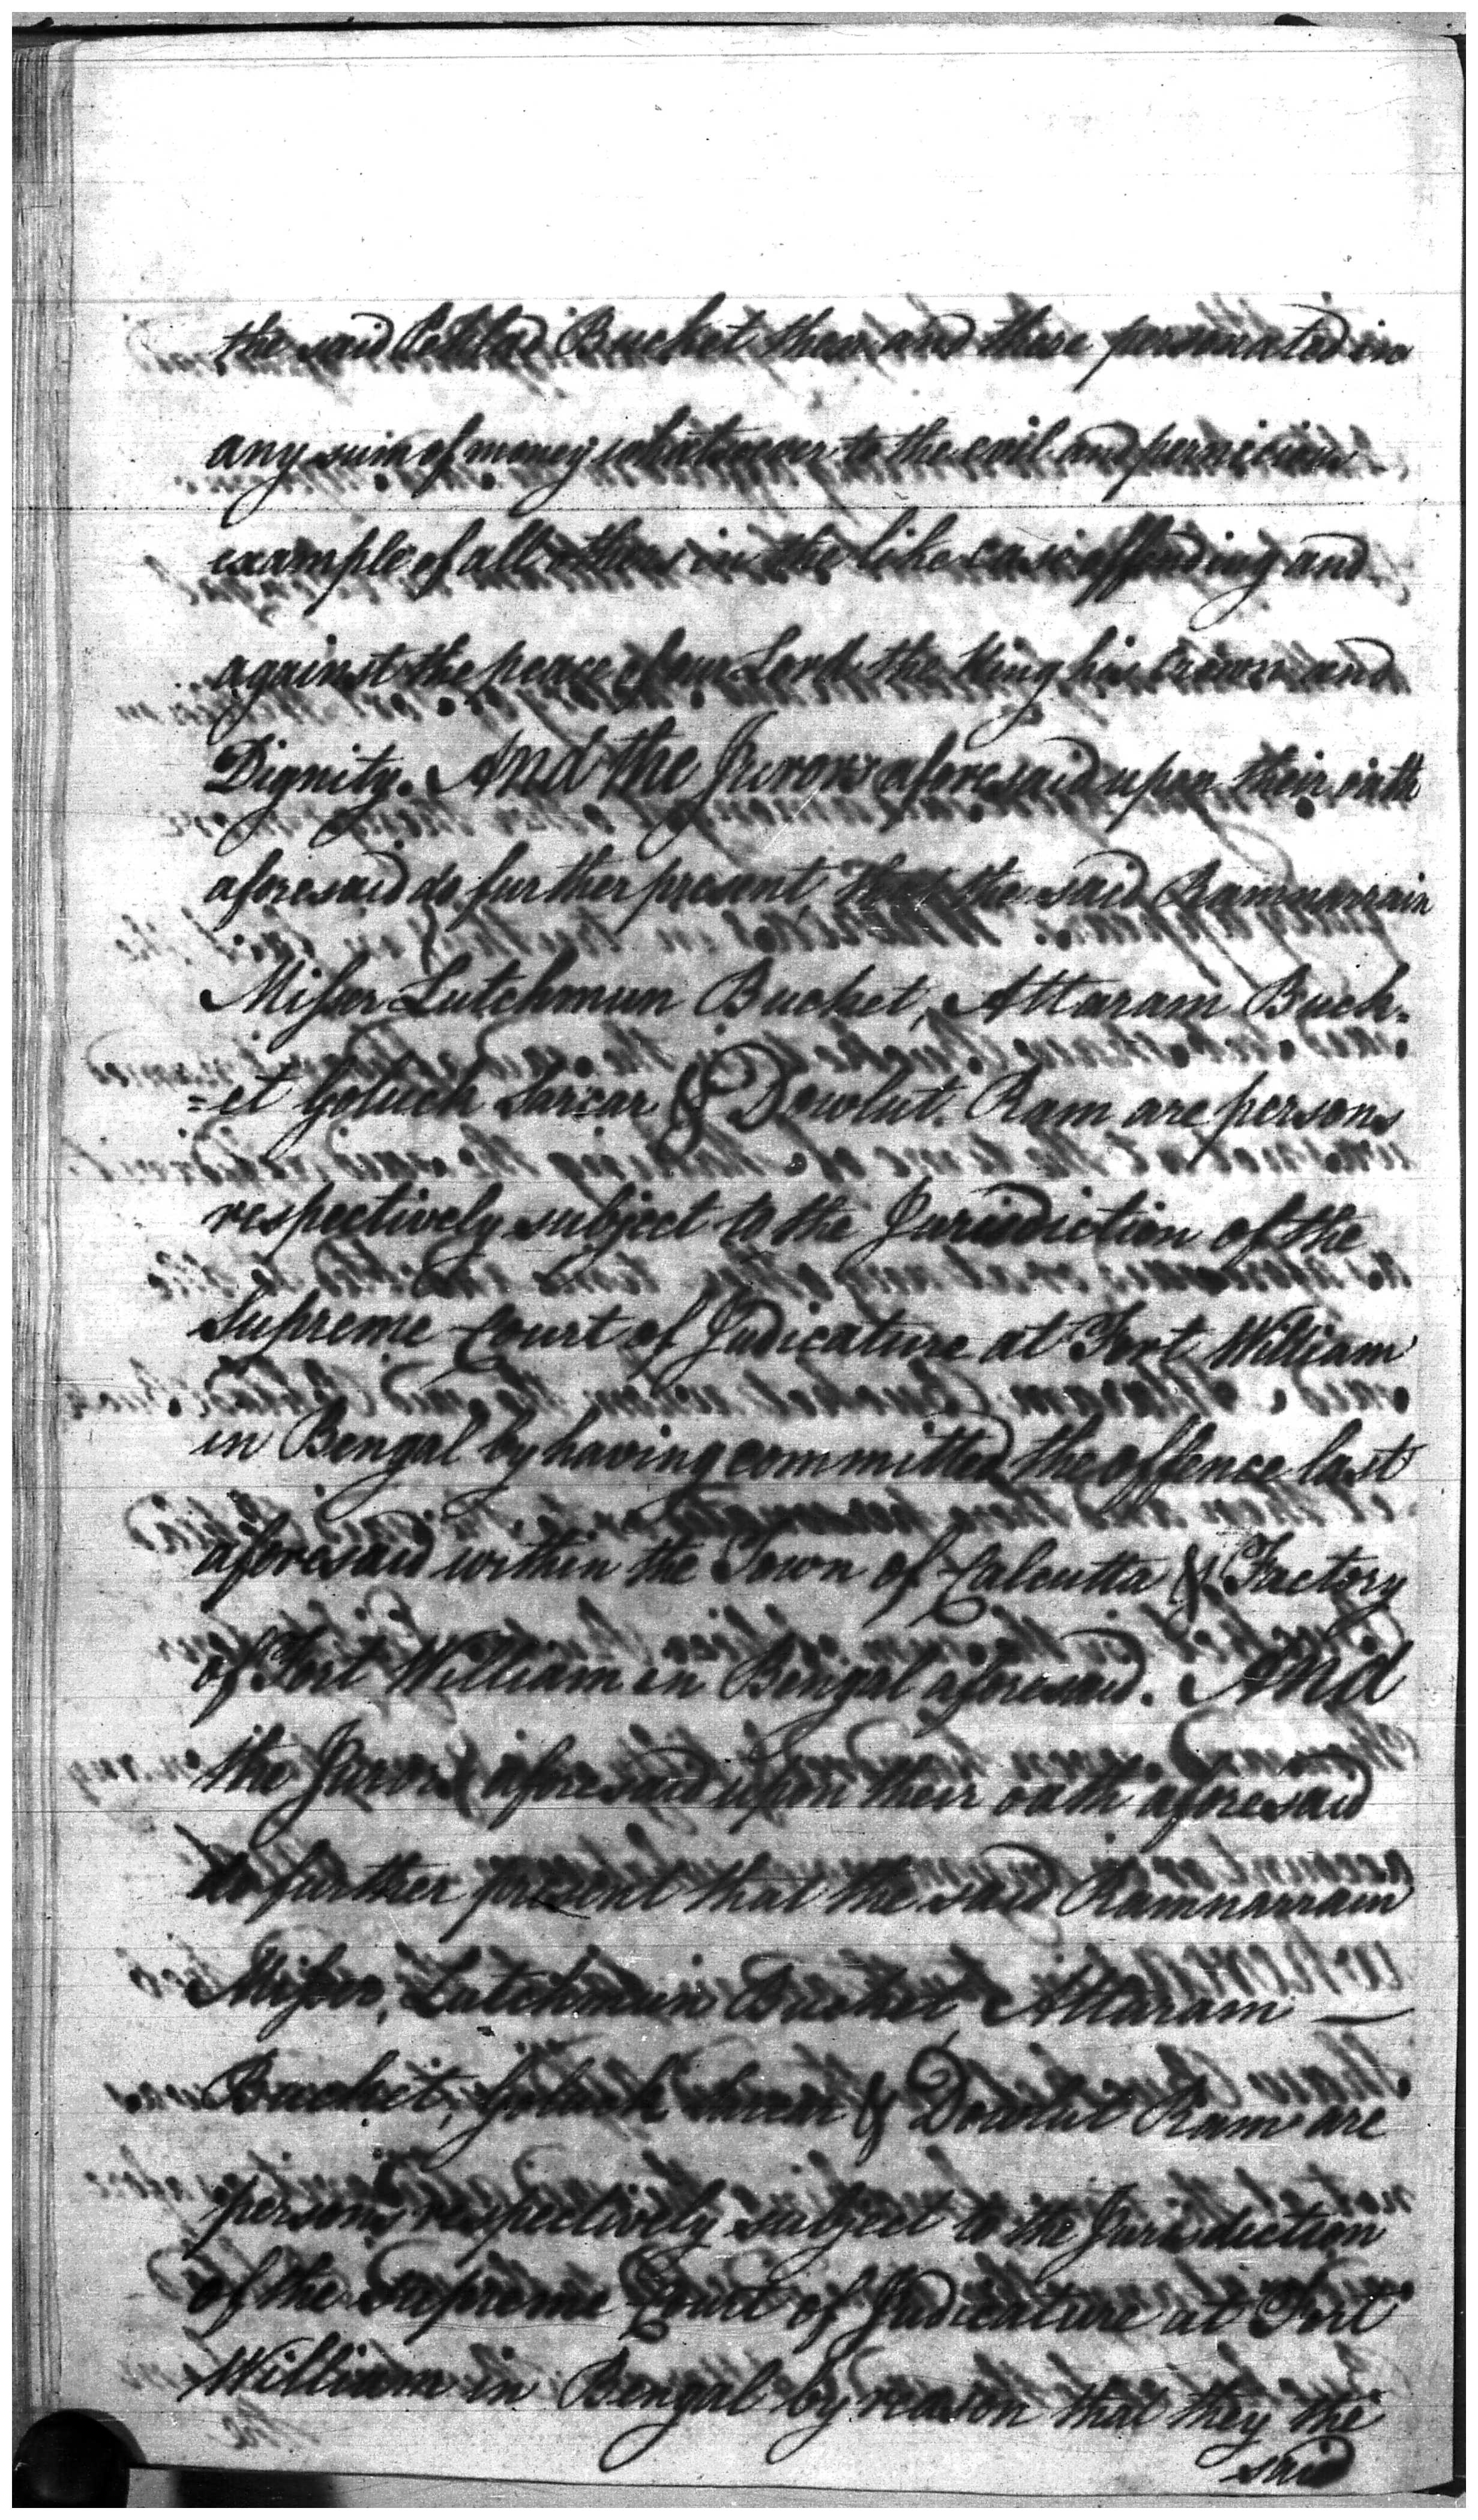 the said Pehlad Bucket then and there personated in
any sum of money whatsoever to the evil and pernicious
example of all others in the like case offending and
against the peace of our Lord the King his Crown and
Dignity. And the Jurors aforesaid upon their oath
aforesaid do further present that the said Ramnarrain
Misser Lutchmun Bucket, Attaram Buck-
=et Goluck Sircar & Dowlut Ram are persons
respectively subject to the Jurisdiction of the
Supreme Court of Judicature at Fort William
in Bengal by having committed the offence last
aforesaid within the Town of Calcutta & Factory
of Fort William in Bengal aforesaid. And
the Jurors aforesaid upon their oath aforesaid
do further present that the said Ramnarrain
Misser, Lutchmun Bucket Attaram —
Bucket, Goluck Sircar & Dowlut Ram are
persons respectively subject to the Jurisdiction
of the Supreme Court of Judicature at Fort
William in Bengal by reason that they the
said